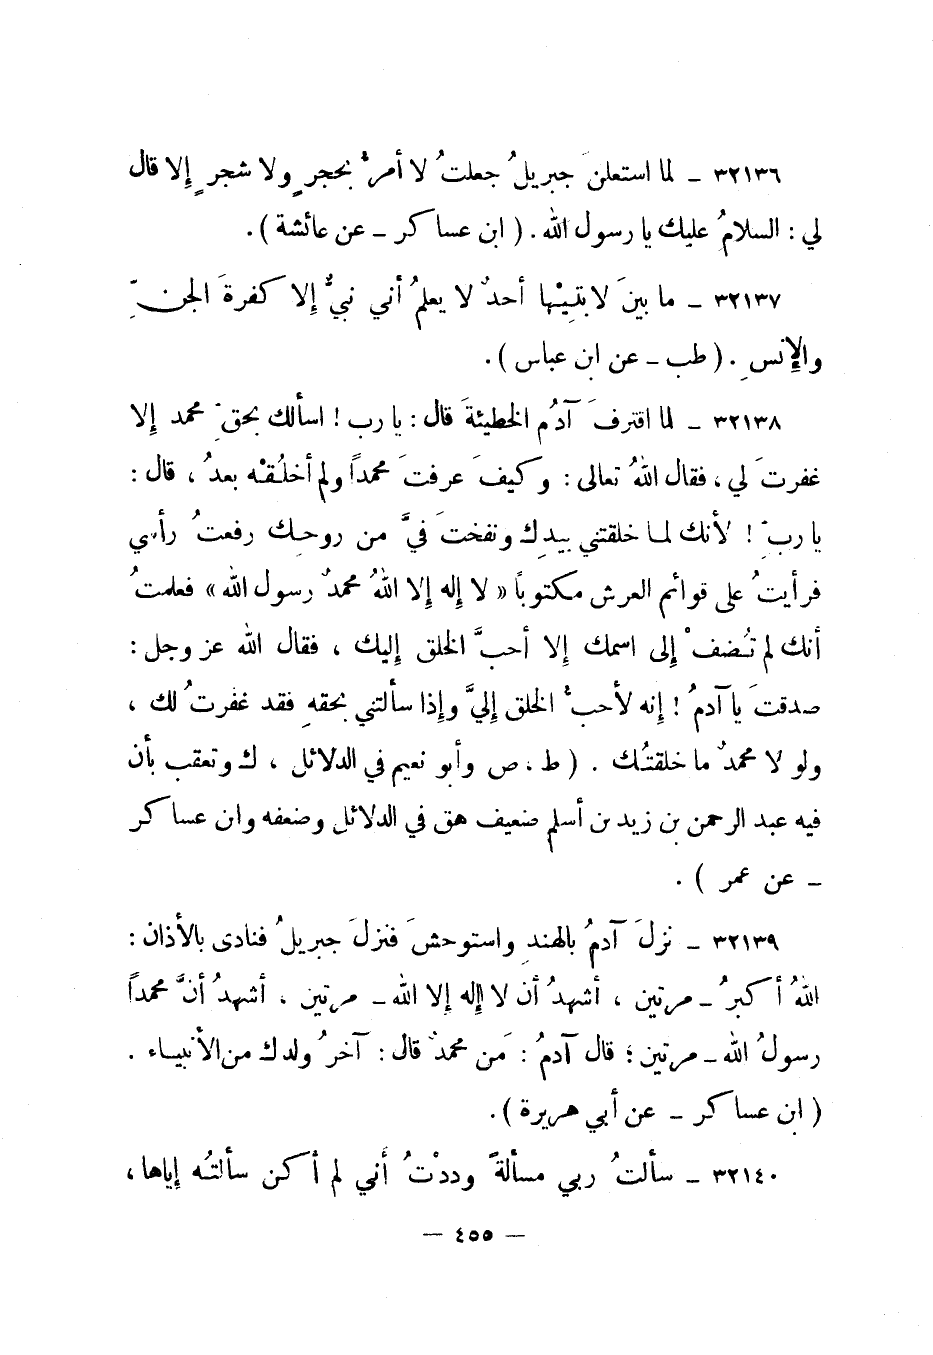 ٣٢١٣٦ ـ لما استعلنَ جبريلُ جعلتُ لا أمرُّ بحجرٍ ولا شجرٍ إلا قال
لي : السلامُ عليك يا رسول الله . ( ابن عساكر ـ عن عائشة ) .
٣٢١٣٧ ـ ما بينَ لابتيْها أحدٌ لا يعلمُ أني نبيٌّ إلا كفرةَ الجنِّ
والإنسِ . ( طب ـ عن ابن عباس ) .
٣٢١٣٨ ـ لما اقترفَ آدمُ الخطيئةَ قال : يا رب ! اسألك بحقِّ محمد إلا
غفرتَ لي ، فقال اللهُ تعالى : وكيفَ عرفتَ محمداً ولم أخلُقْه بعدُ ، قال :
يا ربِّ ! لأنك لما خلقتني بيدِك ونفختَ فيَّ من روحك رفعتُ رأسي
فرأيتُ على قوائم العرش مكتوباً « لا إله إلا اللهُ محمدٌ رسول الله » فعلمتُ
أنك لم تُضفْ إلى اسمك إلا أحبَّ الخلق إليك ، فقال الله عز وجل :
صدقتَ يا آدمُ ! إنه لأحبُّ الخلق إليَّ وإذا سألتني بحقهِ فقد غفرتُ لك ،
ولو لا محمدٌ ما خلقتُك . ( ط ، ص وأبو نعيم في الدلائل ، ك وتعقب بأن
فيه عبد الرحمن بن زيد بن أسلم ضعيف هق في الدلائل وضعفه وابن عساكر
ـ عن عمر ) .
٣٢١٣٩ ـ نزلَ آدمُ بالهندِ واستوحشَ فنزلَ جبريلُ فنادى بالأذان :
اللهُ أكبرُ ـ مرتين ، أشهدُ أن لا إله إلا الله ـ مرتين ، أشهدُ أنَّ محمداً
رسولُ الله ـ مرتين ؛ قال آدمُ : مَن محمدٌ قال : آخرُ ولدك من الأنبياء .
( ابن عساكر ـ عن أبي هريرة ) .
٣٢١٤٠ ـ سألتُ ربي مسألةً وددْتُ أني لم أكن سألتُه إياها ،
— ٤٥٥ —